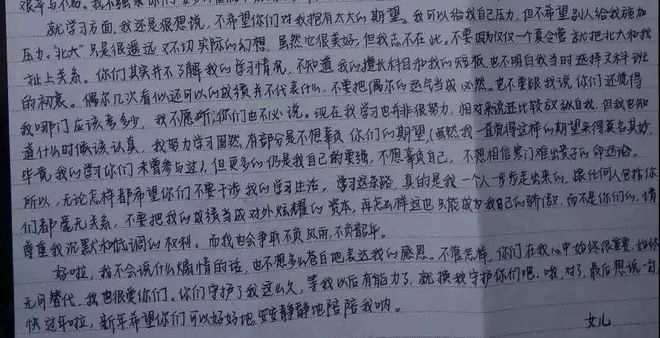 就学习方面,我还是很想说,不希望你们对我抱有太大的期望。我可以给我自己压力,但不希望别人给我施加
压力。"北大"只是很遥远又不切实际的幻想,虽然它很美好,但我志不在此。不要因为仅仅一个夏令营就把北大和我
扯上关系。你们其实并不了解我的学习情况,不知道我的擅长科目和我的短板,也不明白我当时选择文科班
的初衷。偶尔几次看似还可以的成绩并不代表什么,不要把偶尔的运气当成必然。也不要跟我说你们还觉得
我哪门应该考多少,我不愿听,你们也不必说。现在我学习也并非很努力,相对来说还比较放纵自我,但我也知
道什么时候该认真。我努力学习固然有部分是不想辜负你们的期望,(虽然我一直觉得这样的期望来得莫名其妙,
毕竟我的学习你们未曾参与过),但更多的仍是我自己的要强,不想辜负自己,不想相信寒门难出贵子的命运论。
所以,无论怎样都希望你们不要干涉我的学习生活。学习这条路,真的是我一个人一步步走出来的,跟任何人包括你
们都毫无关系,不要把我的成绩当成对外炫耀的资本,再怎么样这也只能成为我自己的骄傲,而不是你们的,请
尊重我沉默和低调的权利。而我也会争取不负风雨,不负韶年。
好啦,我不会说什么煽情的话,也不想多么卷白地表达我的感恩。不管怎样,你们在我心中始终很重要,始终
无可替代。我也很爱你们。你们守护了我这么久,等我以后有能力了,就换我守护你们吧。哦,对了,最后想说一句
快过年啦,新年希望你们可以好好地,安安静静地陪陪我呐。
女儿